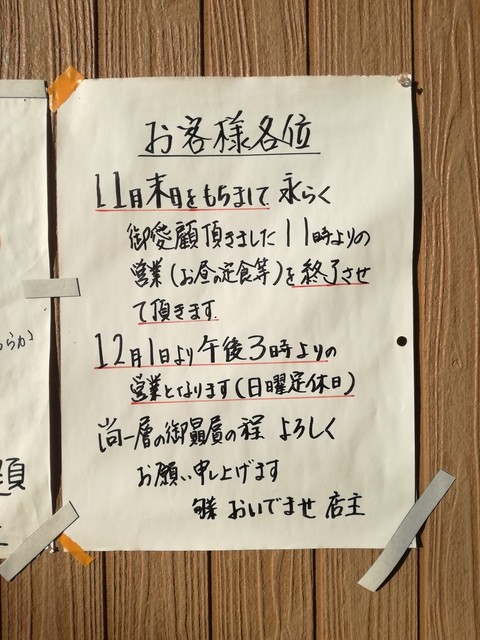 お客様各位
11月末日をもちまして 永らく
御愛顧頂きました 11時よりの
営業(お昼の定食等)を終了させ
て頂きます.
12月1日より午後3時よりの
営業となります(日曜定休日)
尚一層の御贔屓の程 よろしく
お願い申し上げます
おいでませ 店主
らか
題